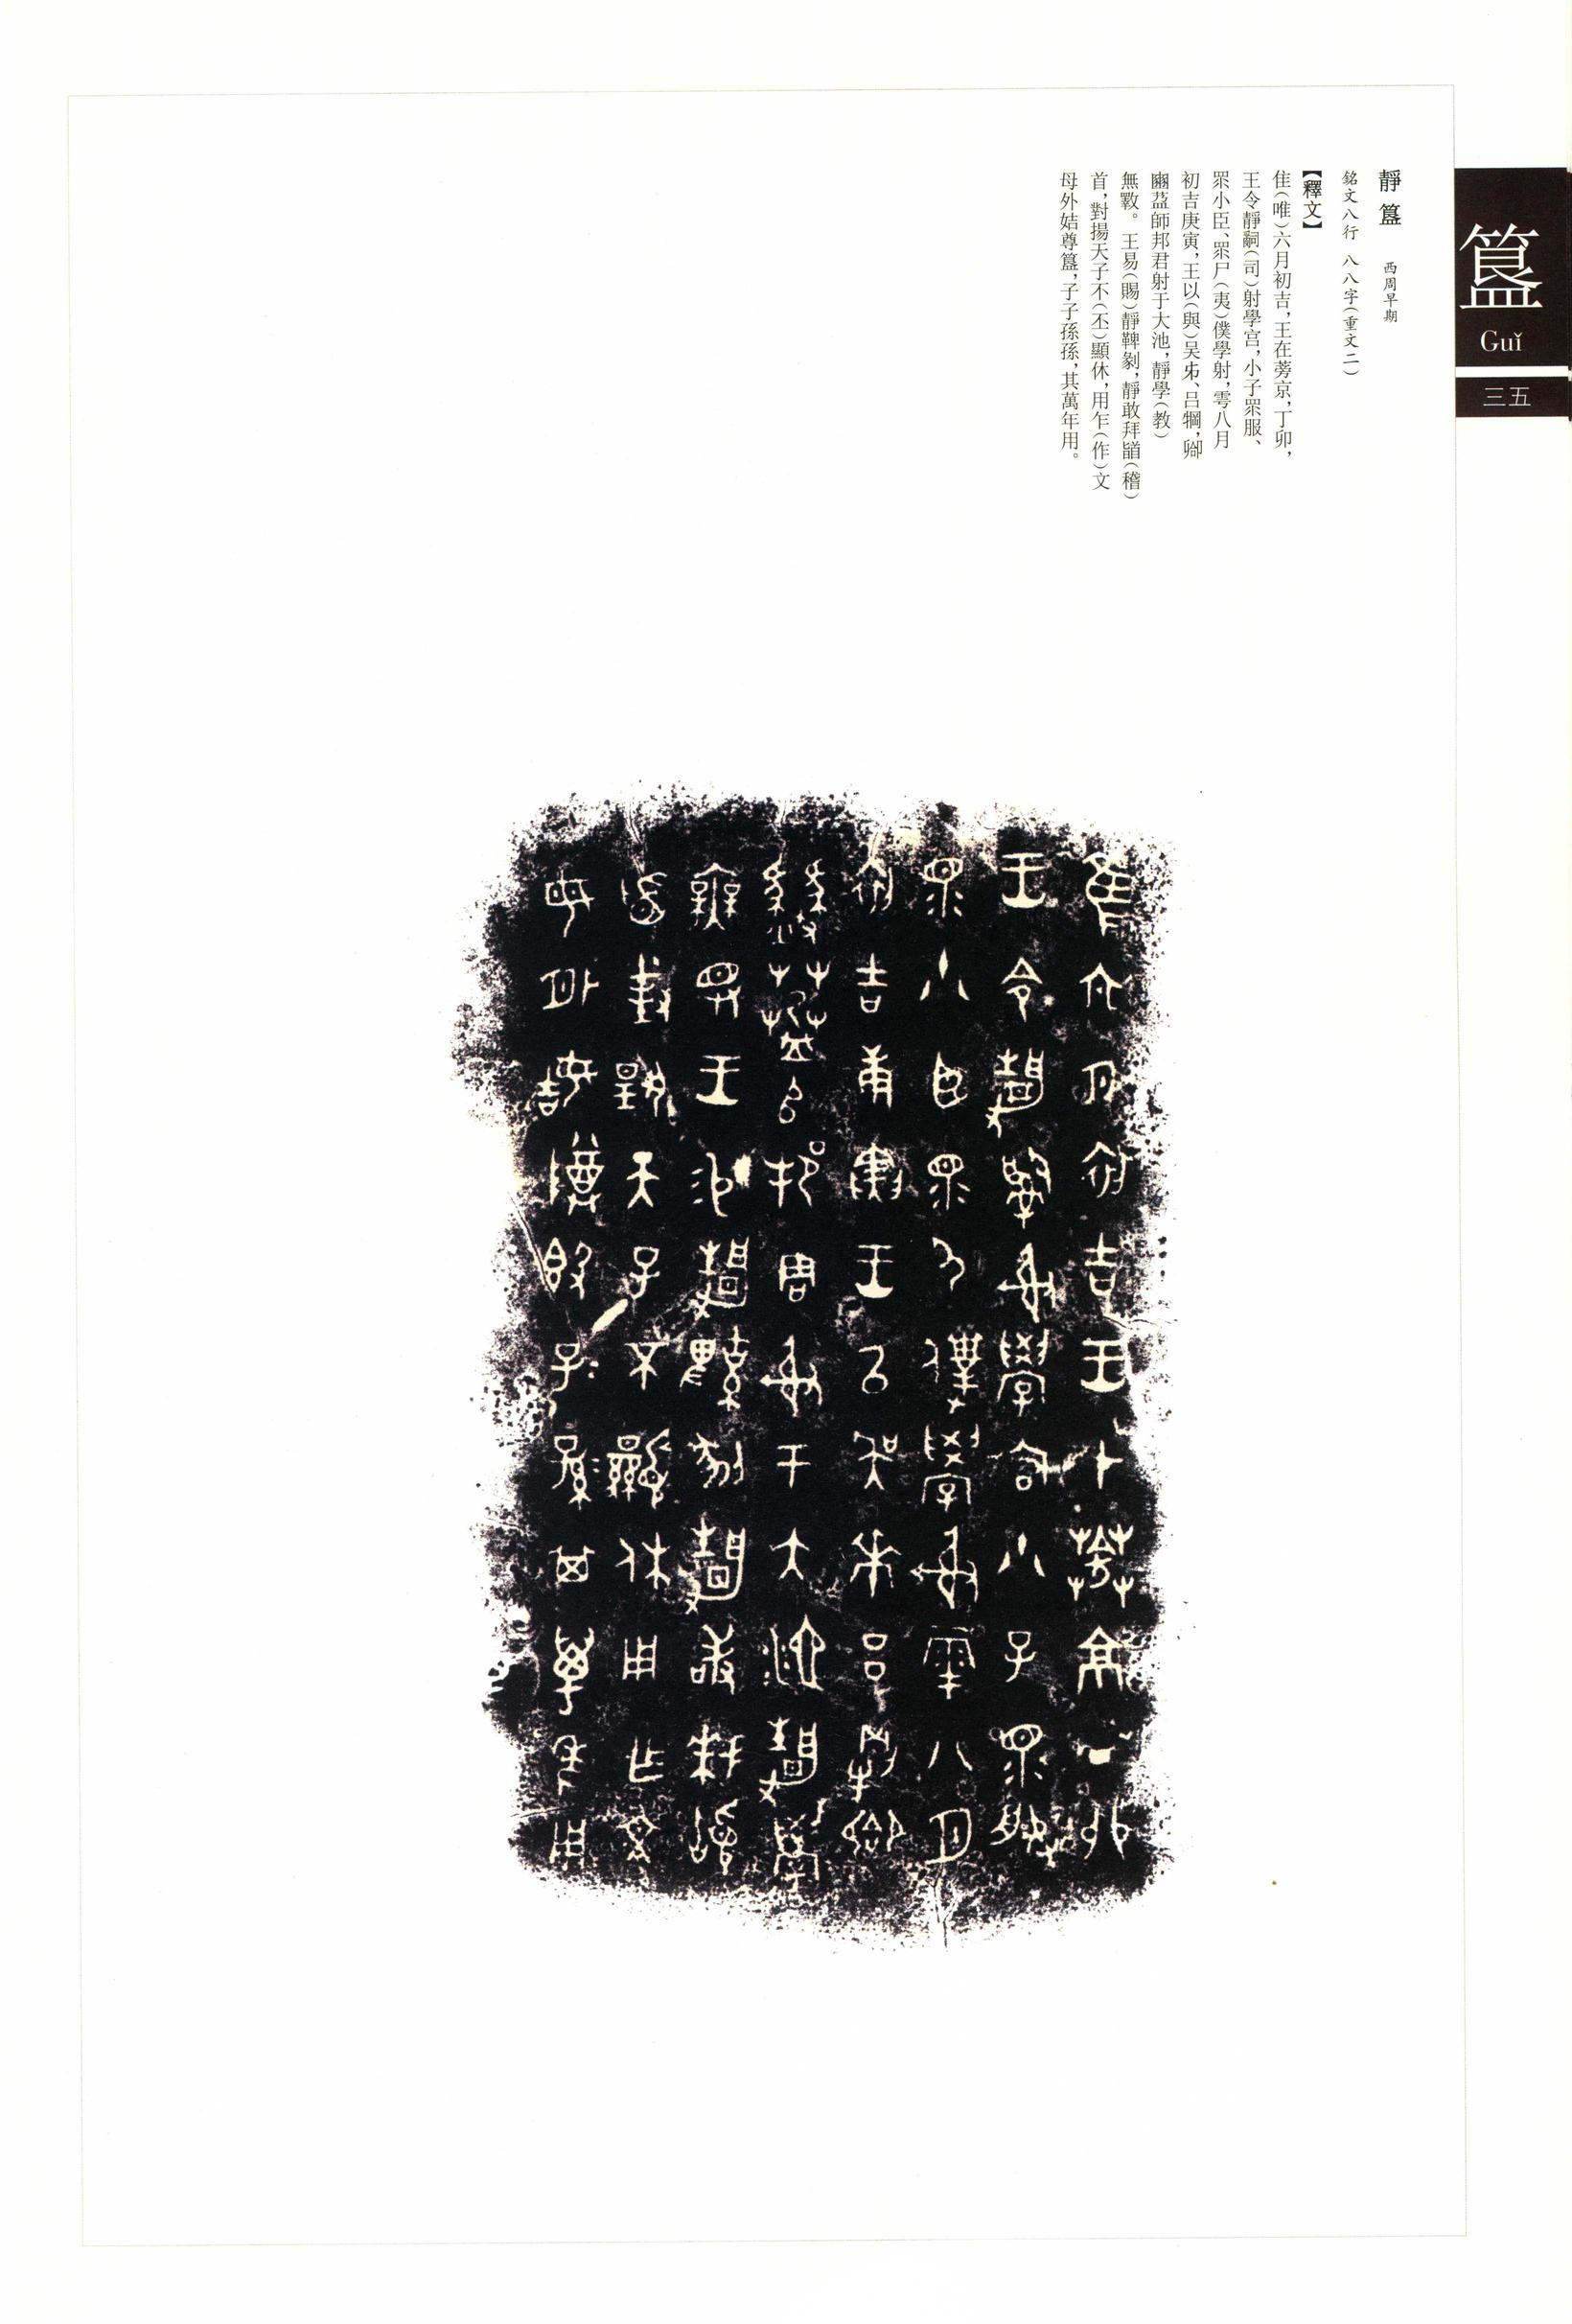 簋
Guǐ
三五
靜簋 西周早期
銘文八行 八八字(重文二)
【釋文】
隹(唯)六月初吉,王在蒡京,丁卯,
王令靜嗣(司)射學宫,小子眔服、
眔小臣、眔尸(夷)僕學射,雩八月
初吉庚寅,王以(與)吴㠯、吕犅,卿
豳蓝師邦君射于大池,靜學(教)
無斁。王易(賜)靜鞞剝,靜敢拜䭫(稽)
首,對揚天子不(丕)顯休,用乍(作)文
母外姞尊簋,子子孫孫,其萬年用。